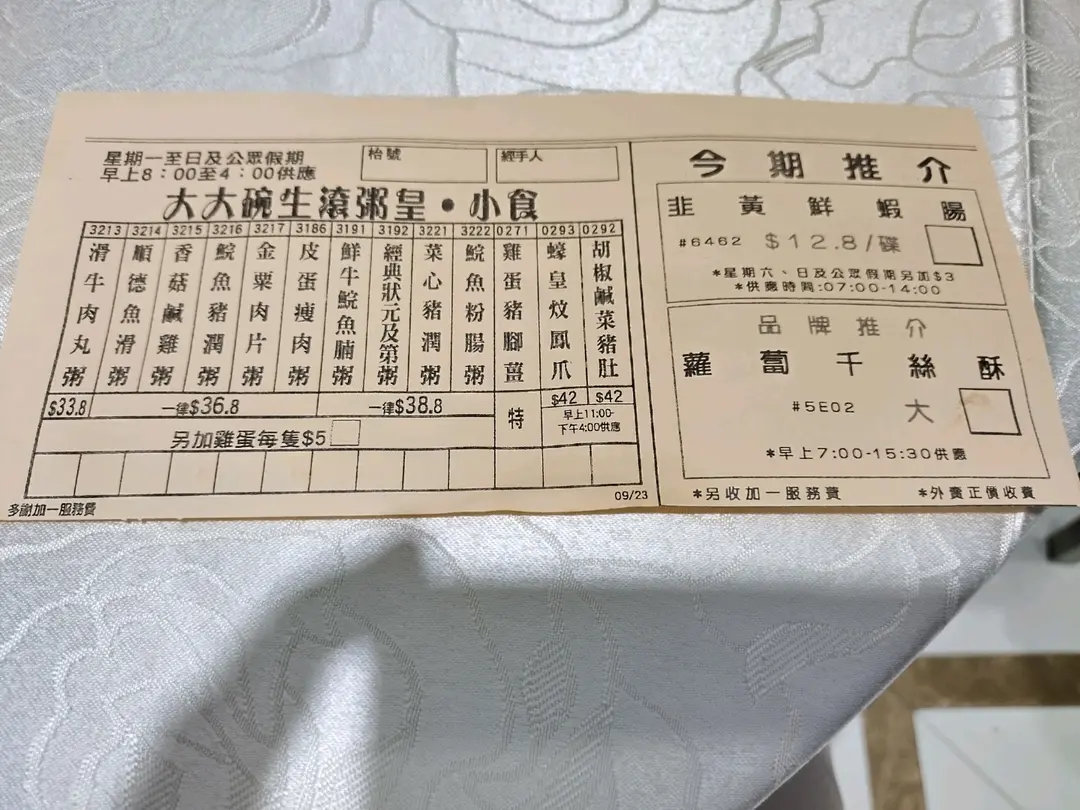 星期一至日及公眾假期
早上8:00至4:00供應
枱號
經手人
大大碗生滾粥皇·小食
3213 3214 3215 3216 3217 3186 3191 3192 3221 3222 0271 0293 0292
滑牛肉丸粥
順德魚滑粥
香菇鹹雞粥
鯇魚豬潤粥
金粟肉片粥
皮蛋瘦肉粥
鮮牛鯇魚腩粥
經典狀元及第粥
菜心豬潤粥
鯇魚粉腸粥
雞蛋豬腳薑
蠔皇炆鳳爪
胡椒鹹菜豬肚
$33.8
一律$36.8
一律$38.8
特
$42 $42
早上11:00-
下午4:00供應
另加雞蛋每隻$5
多謝加一服務費
09/23
今期推介
韭黃鮮蝦腸
#6462 $12.8/碟
*星期六、日及公眾假期另加$3
*供應時間:07:00-14:00
品牌推介
蘿蔔千絲酥
#5E02 大
*早上7:00-15:30供應
*另收加一服務費 *外賣正價收費